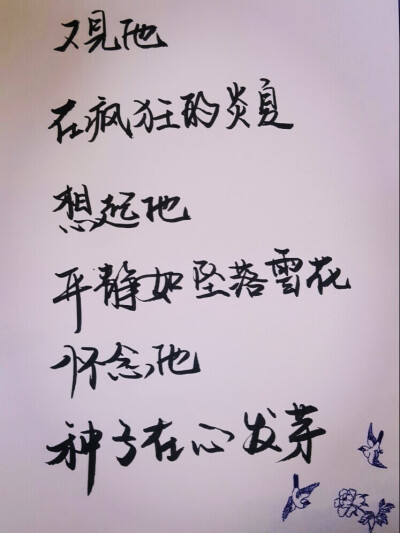 又見他
在疯狂的炎夏
想起他
平静如坠落雲花
怀念他
种子在心发芽